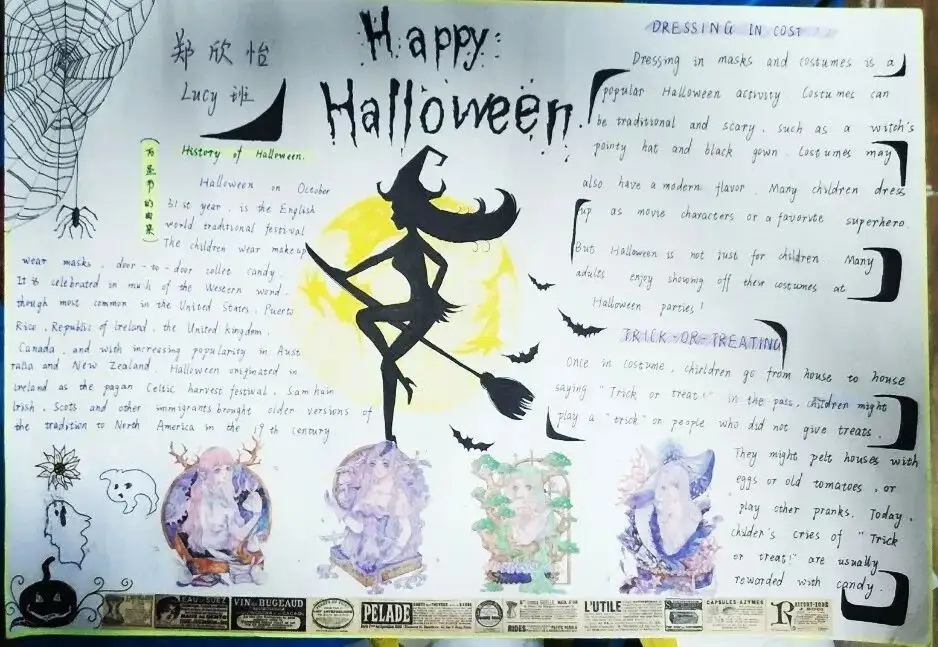 郑欣怡
Lucy 班
Happy
Halloween!
万圣节的由来
History of Halloween.
Halloween on October
31st year, is the English
world traditional festival
The children wear makeup
wear masks, door-to-door collet candy.
It is celebrated in much of the Western world.
though most common in the United States, Puerto
Rico, Republic of Ireland, the United kingdom,
Canada, and with increasing popularity in Aust
ralia and New Zealand. Halloween originated in
Ireland as the pagan Celtic harvest festival, Samhain
Irish, Scots and other immigrants brought older versions of
the tradition to North America in the 19th century
DRESSING IN COST
Dressing in masks and costumes is a
popular Halloween activity Costumes can
be traditional and scary, such as a witch's
pointy hat and black gown. Costumes may
also have a modern flavor. Many children dress
up as movie characters or a favorite superhero.
But Halloween is not just for children Many
adults enjoy showing off their costumes at
Halloween parties!
TRICK-OR-TREATING
Once in costume, children go from house to house
saying "Trick or treat!" in the past, children might
play a "trick" on people who did not give treats.
They might pelt houses with
eggs or old tomatoes, or
play other pranks. Today,
childer's cries of "Trick
or treat!" are usually
rewarded with candy.
VIN DE BUGEAUD
PELADE
L'UTILE
CAPSULES AZYMES